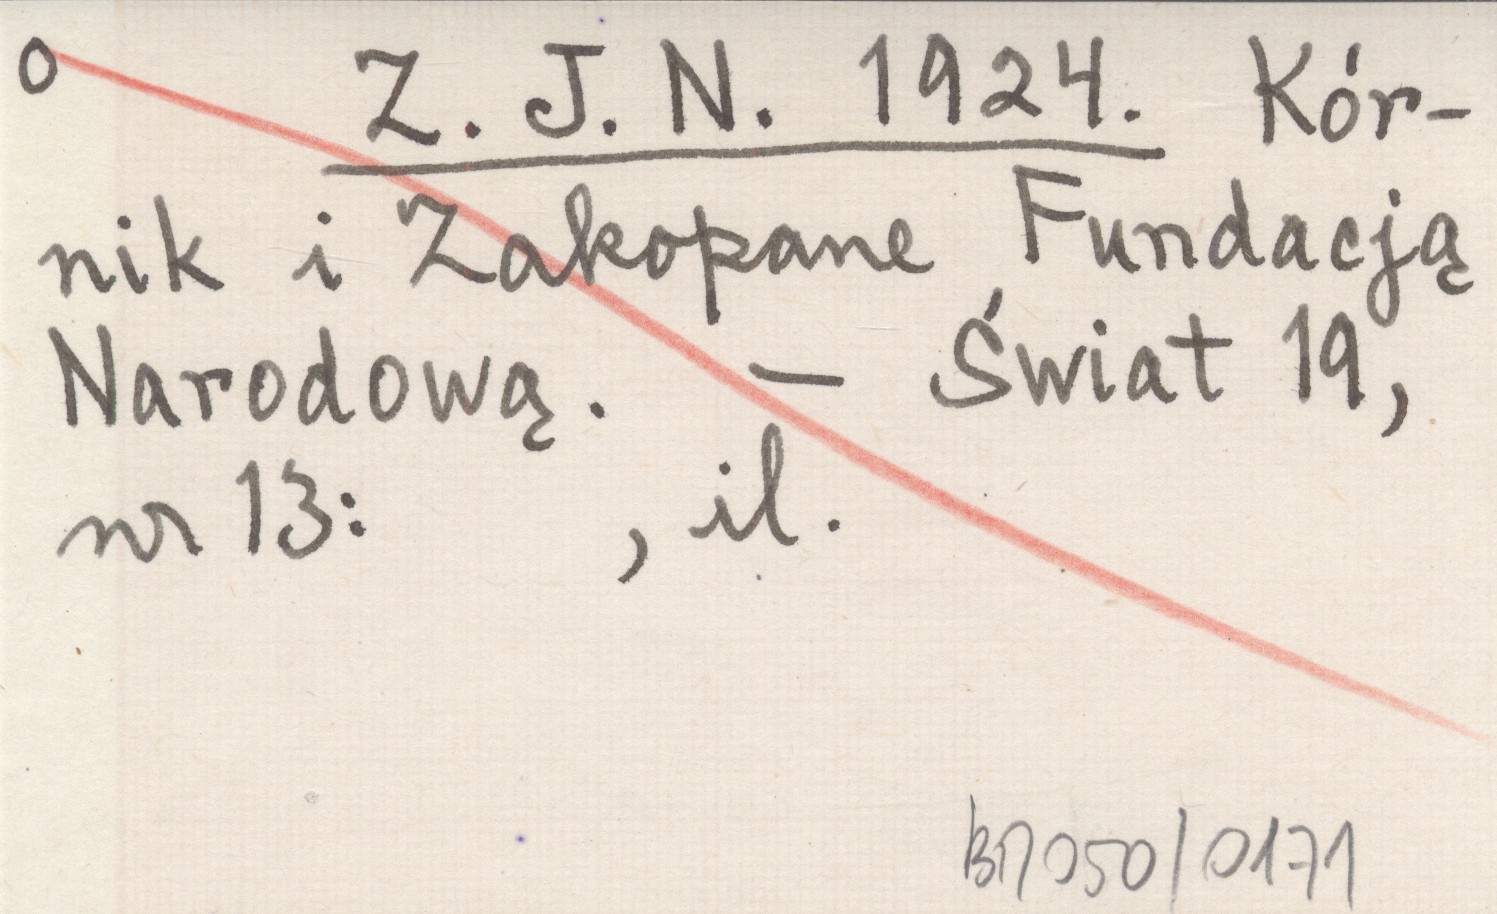 o Z. J. N. 1924. Kór-
nik i Zakopane Fundacją
Narodową. — Świat 19,
nr 13: , il.
050/0171